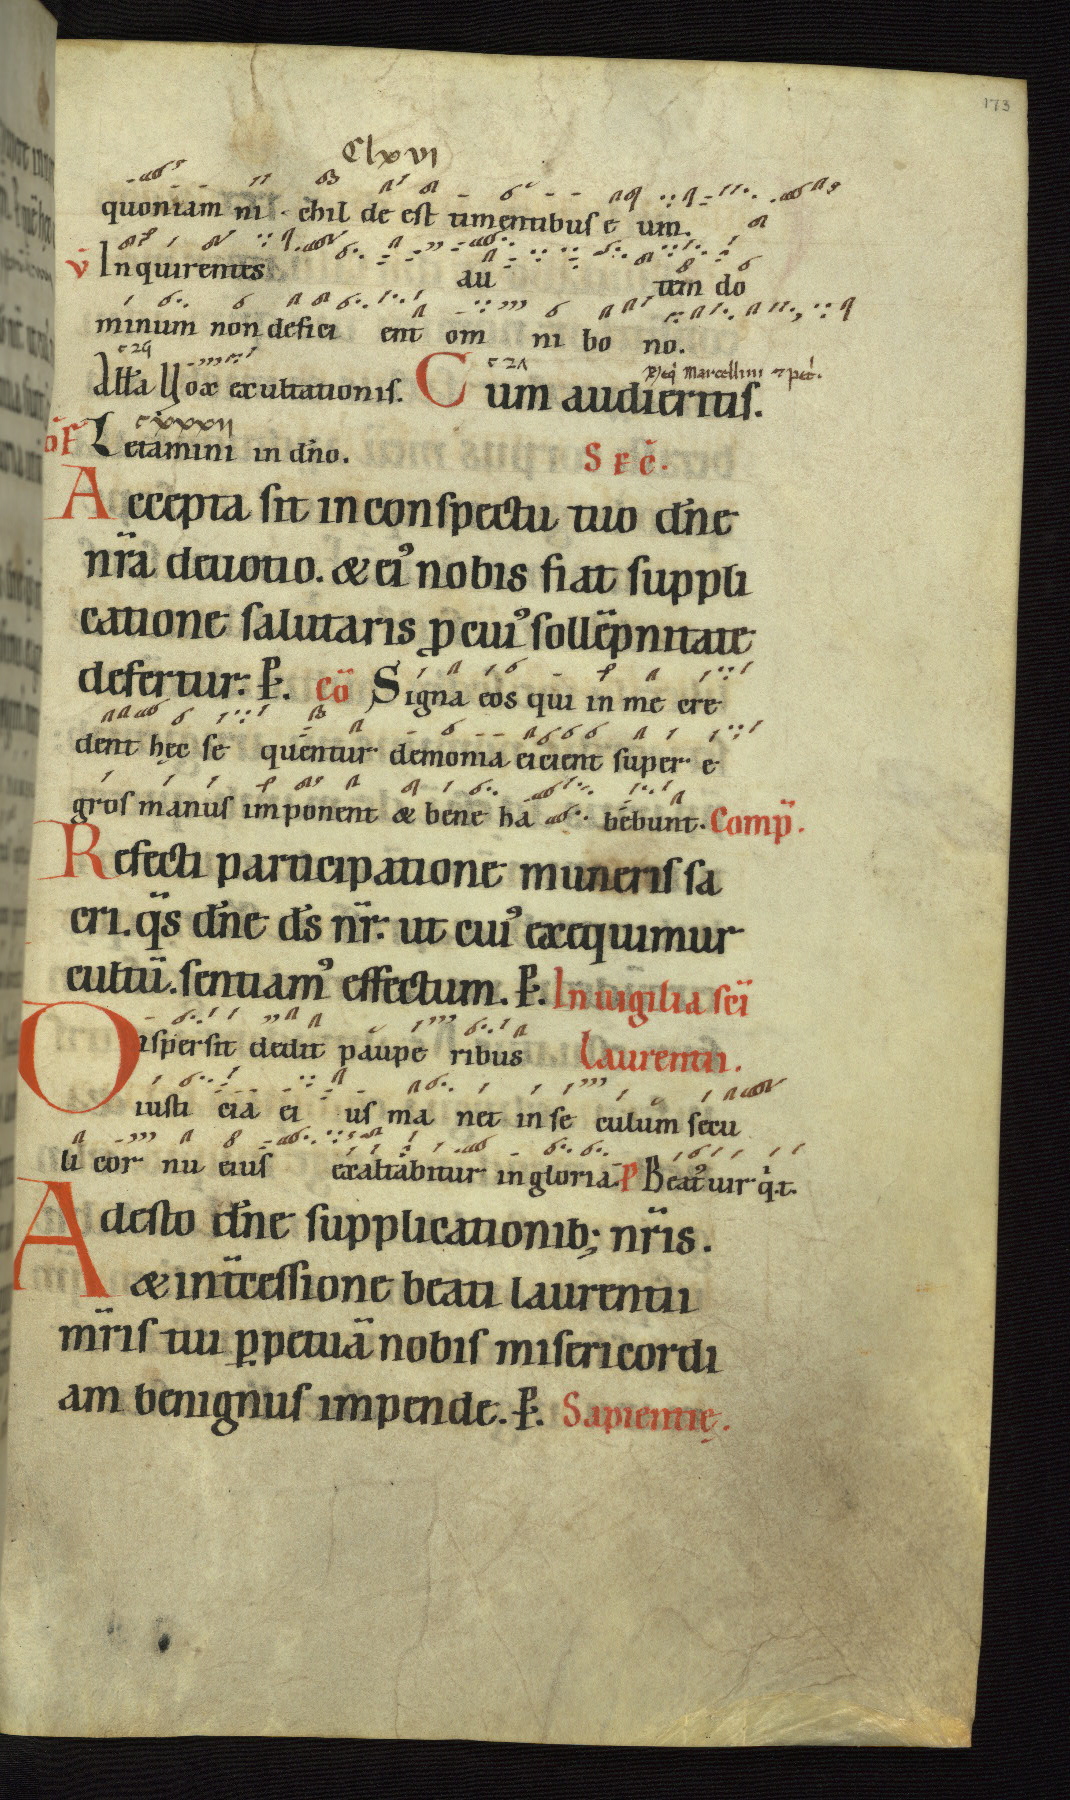 173
Clxvi
quoniam ni chil de est timentibus e um.
v Inquirentes au tem do
minum non defici ent om ni bo no.
c29
All'a Uox exultationis. Cum audieritis.
cxxxii
of Letamini in dño. Sec̄.
Accepta sit in conspectu tuo dñe
nr̄a deuotio. & ei⁹ nobis fiat suppli
catione salutaris ꝓ cui⁹ sollēpnitate
defertur. P. cō Signa eos qui in me cre
dent hęc se quentur demonia eicient super e
gros manus imponent & bene ha bebunt. Comp̄.
Refecti participatione muneris sa
cri. q̄s dñe ds nr̄. ut cui⁹ exequimur
cultū. sentiam⁹ effectum. P. In uigilia scī
Dispersit dedit paupe ribus Laurentii.
iusti cia ei us ma net in se culum secu
li cor nu eius exaltabitur in gloria. P Beat⁹ uir q̇ t.
Adesto dñe supplicationib; nr̄is.
& int̄cessione beati laurentii
mr̄is tui ꝑpetuā nobis misericordi
am benignus impende. P. Sapientię.